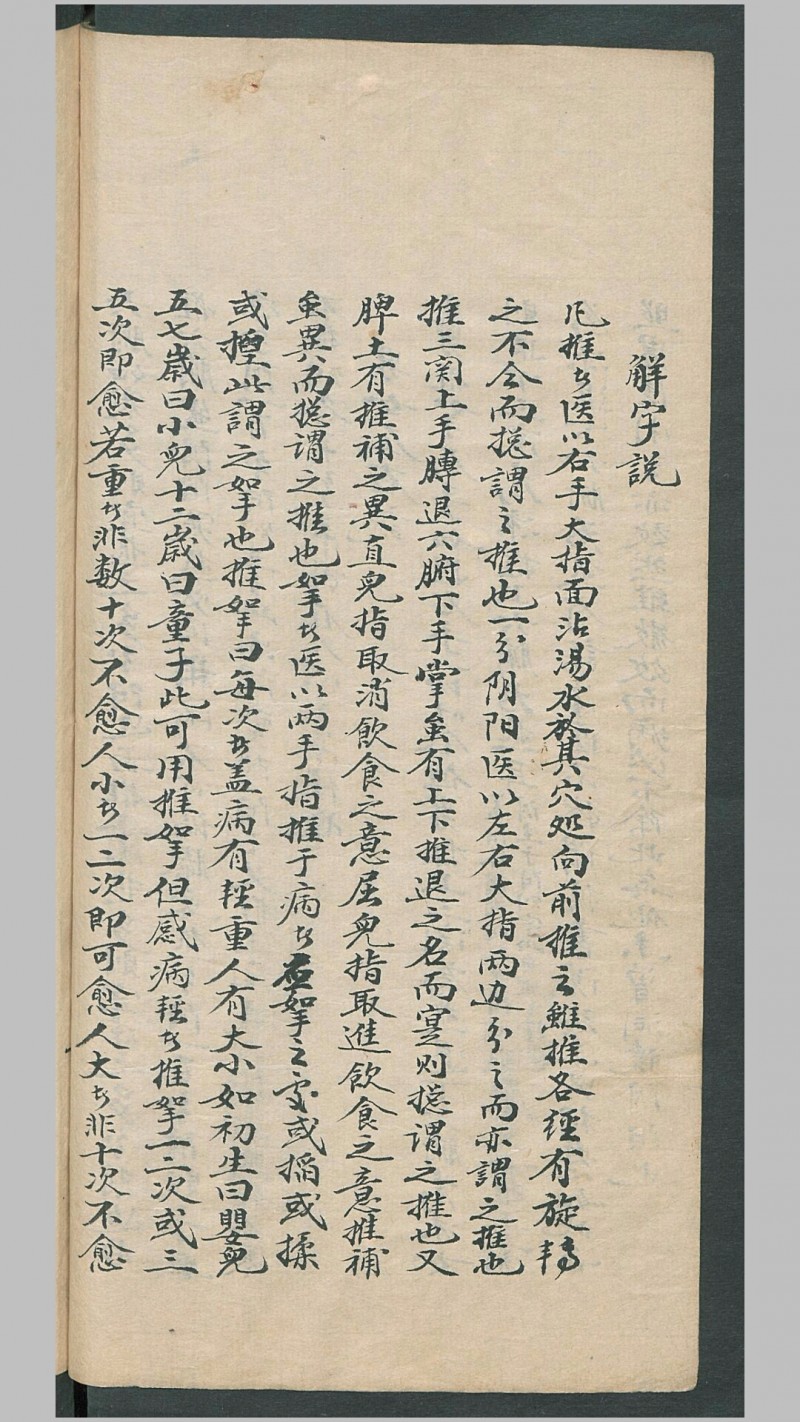 解字説
凡推者医以右手大指面沾湯水於其穴処向前推之雖推各經有旋轉
之不仝而揔謂之推也一分阴阳医以左右大指两边分之而亦謂之推也
推三関上手膊退六腑下手掌虽有上下推退之名而寔则揔謂之推也又
脾土有推補之異直兒指取消飲食之意屈兒指取進飲食之意推補
虽異而揔謂之推也拏者医以两手指推于病者 拏之或掐或揉
或揑此謂之拏也推拏曰每次者盖病有輕重人有大小如初生曰嬰兒
五七歲曰小兒十二歲曰童子此可用推拏但感病輕者推拏一二次或三
五次即愈若重者非数十次不愈人小者一二次即可愈人大者非十次不愈